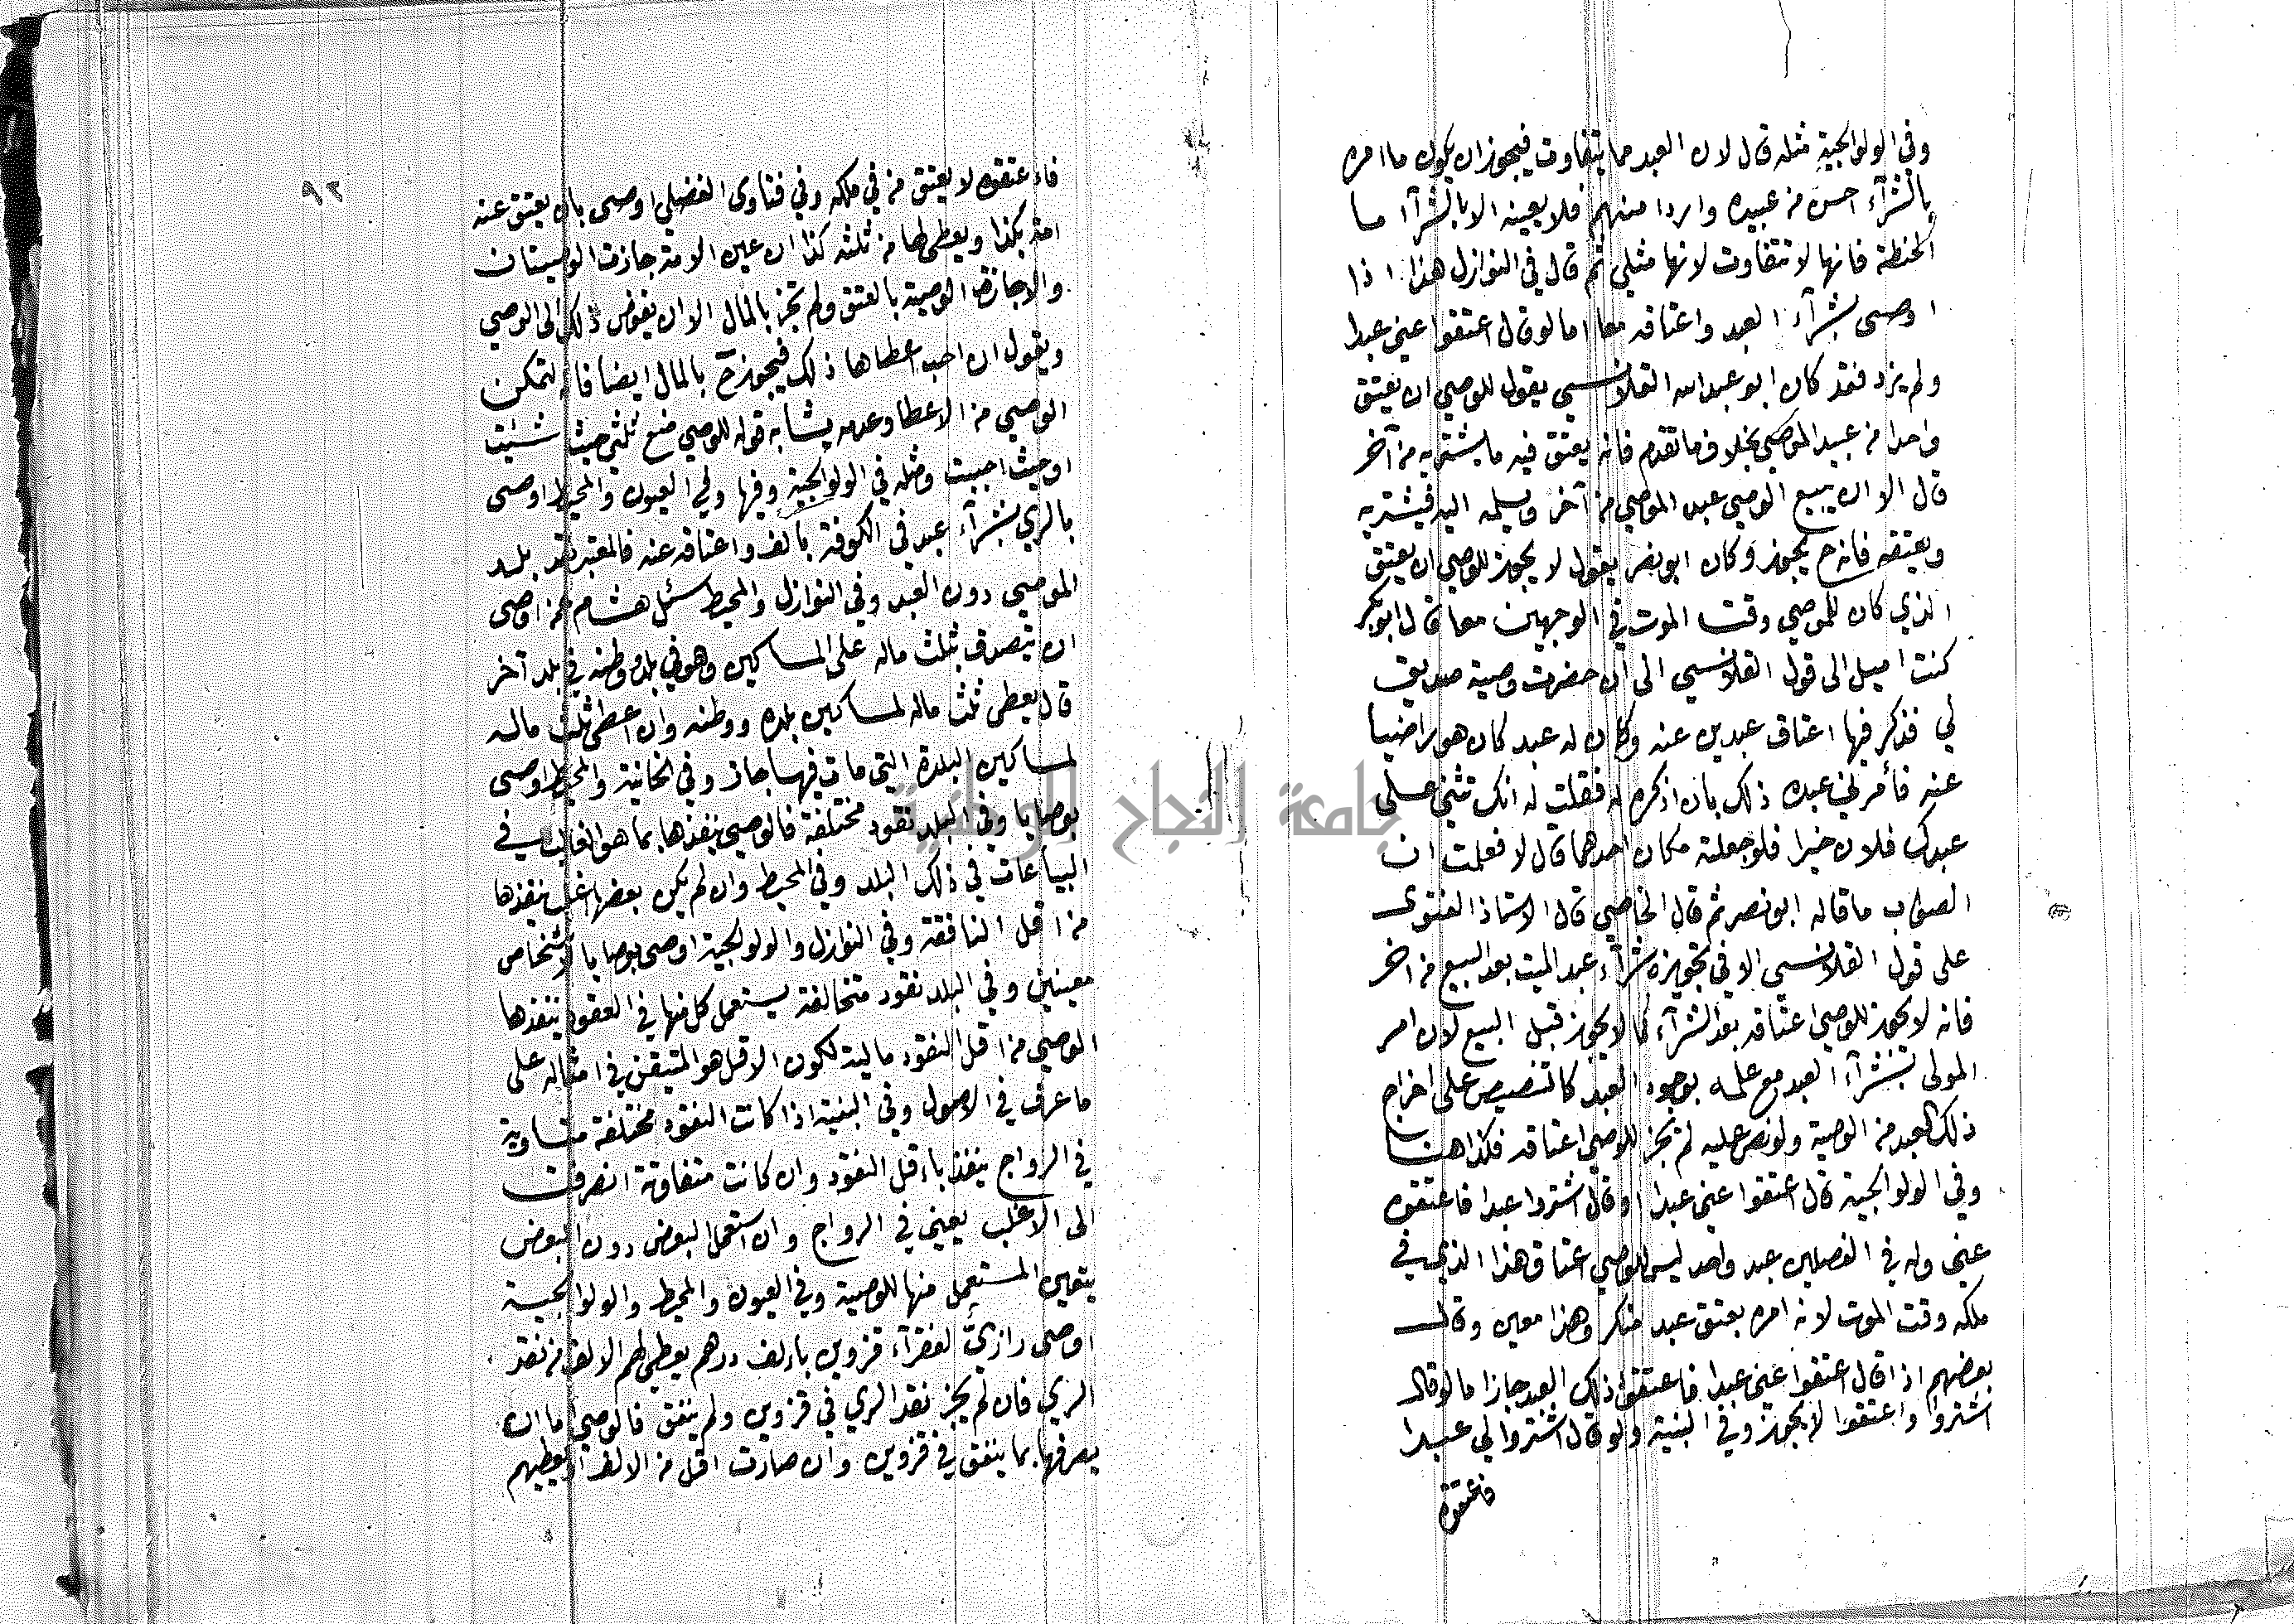 وفي الولوالجية مثله قال لان العبد مما يتفاوت فيجوز ان يكون ما امره
بالشرآء احسن من عبيده واردا منهم فلا يعينه الا بالشرآ اما
الحنطة فانها لا تتفاوت لانها مثلي ثم قال في النوازل هذا اذا
اوصى بشرآء العبد واعتاقه معا اما لو قال اعتقوا عني عبدا
ولم يزد فقد كان ابو عبد الله القلانسي يقول للوصي ان يعتق
واحدا من عبيد الموصي بخلاف ما تقدم فانه يعتق فيه ما يشتريه من آخر
قال الا ان يبيع الوصي عبد الموصي من آخر ويسلمه اليه فيشتريه
ويعتقه فانه ح يجوز وكان ابو نصر يقول لا يجوز للوصي ان يعتق
الذي كان للموصي وقت الموت في الوجهين معا قال ابو بكر
كنت اميل الى قول القلانسي الى ان حضرت وصية صديق
لي فذكر فيها اعتاق عبدين عنه وكان له عبد كان هو راضيا
عنه فأمرني عبده ذلك بان اذكره له فقلت له انك تثني على
عبدك فلان خيرا فلو جعلته مكان احدهما قال لا فعلمت ان
الصواب ما قاله ابو نصر ثم قال الخاصي قال الاستاذ الفتوى
على قول القلانسي الا في تجويزه شرآء عبد الميت بعد البيع من اخر
فانه لا يجوز للوصي اعتاقه بعد الشرآء كما لا يجوز قبل البيع لان امر
المولى بشرآء العبد مع علمه بوجود العبد كالتنصيص على اخراج
ذلك العبد من الوصية ولو نص عليه لم يجز للوصي اعتاقه فكذا هنا
وفي الولوالجية قال اعتقوا عني عبدا او قال اشتروا عبدا فاعتقوه
عني وله في الفصلين عبد واحد ليس للوصي اعتاق هذا الذي في
ملكه وقت الموت لانه امره بعتق عبد منكر وهذا معين وقال
بعضهم اذا قال اعتقوا عني عبدا فاعتقوا ذلك العبد جاز اما لو قال
اشتروا واعتقوا لا يجوز وفي البنية ولو قال اشتروا لي عبدا
فاعتقوه
٩٢
فاعتقوه لا يعتق من في ملكه وفي فتاوى الفضلي اوصى بان يعتق عنه
امته بكذا ويعطى لها من ثلثه كذا ان عين الامة جازت الوصيتان
والا جازت الوصية بالعتق ولم تجز بالمال الا ان يفوض ذلك الى الوصي
ويقول ان احب اعطاها ذلك فيجوز ح بالمال ايضا فانه لتمكن
الوصي من الاعطا وعدمه يشابه قوله للوصي ضع ثلثي حيث شئت
او حيث احببت ومثله في الولوالجية وفيها وفي العيون والمحيط اوصى
بالري بشرآء عبد في الكوفة بالف واعتاقه عنه فالمعتبر نقد بلد
الموصي دون العبد وفي النوازل والمحيط سئل هشام عمن اوصى
ان يتصدق بثلث ماله على المساكين وهو في بلد ووطنه في بلد آخر
قال يعطى ثلث ماله لمساكين بلده ووطنه وان اعطى ثلث ماله
لمساكين البلدة التي مات فيها جاز وفي الخانية والمحيط اوصى
بوصايا وفي البلد نقود مختلفة فالوصي ينفذها بما هو الغالب في
البياعات في ذلك البلد وفي المحيط وان لم يكن بعضها اغلب ينفذها
من اقل النافقة وفي النوازل والولوالجية اوصى بوصايا لاشخاص
معينين وفي البلد نقود متخالفة يستعمل كل منها في العقود ينفذها
الوصي من اقل النقود مالية لكون الاقل هو المتيقن في امثاله على
ما عرف في الاصول وفي البنية اذا كانت النقود مختلفة متساوية
في الرواج ينفذ باقل النقود وان كانت متفاوتة انصرفت
الى الاغلب يعيني في الرواج وان استعمل البعض دون البعض
يتعين المستعمل منها للوصية وفي العيون والمحيط والولوالجية
اوصى رازي لفقرآء قزوين بالف درهم يعطي لهم الالف من نقد
الري فان لم يجز نقد الري في قزوين ولم ينفق فالوصي اما ان
يصرفها بما ينفق في قزوين وان صارت اقل من الالف او يعطيهم
جامعة النجاح الوطنية